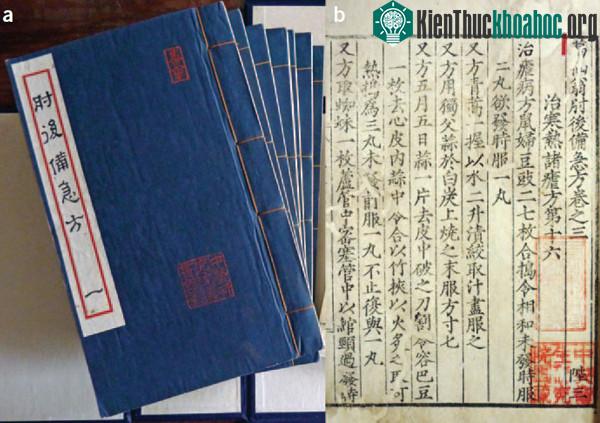 a
肘後備急方
一
b
KienThuckhoahoc.org
葛仙翁肘後備急方卷之三
治寒熱諸瘧方第十六
治瘧病方鼠婦豆豉二七枚合搗令相和未發時服
二丸欲發時服一丸
又方青蒿一握以水二升漬絞取汁盡服之
又方用獨父蒜於白炭上燒之末服方寸七
又方五月五日蒜一片去皮中破之刀割令容巴豆
一枚去心皮內蒜中令合以竹挾以火炙之取可
熱搗為三丸未發前服一丸不止復與一丸
又方取蜘蛛一枚蘆管中密塞管中以綰頸過發時